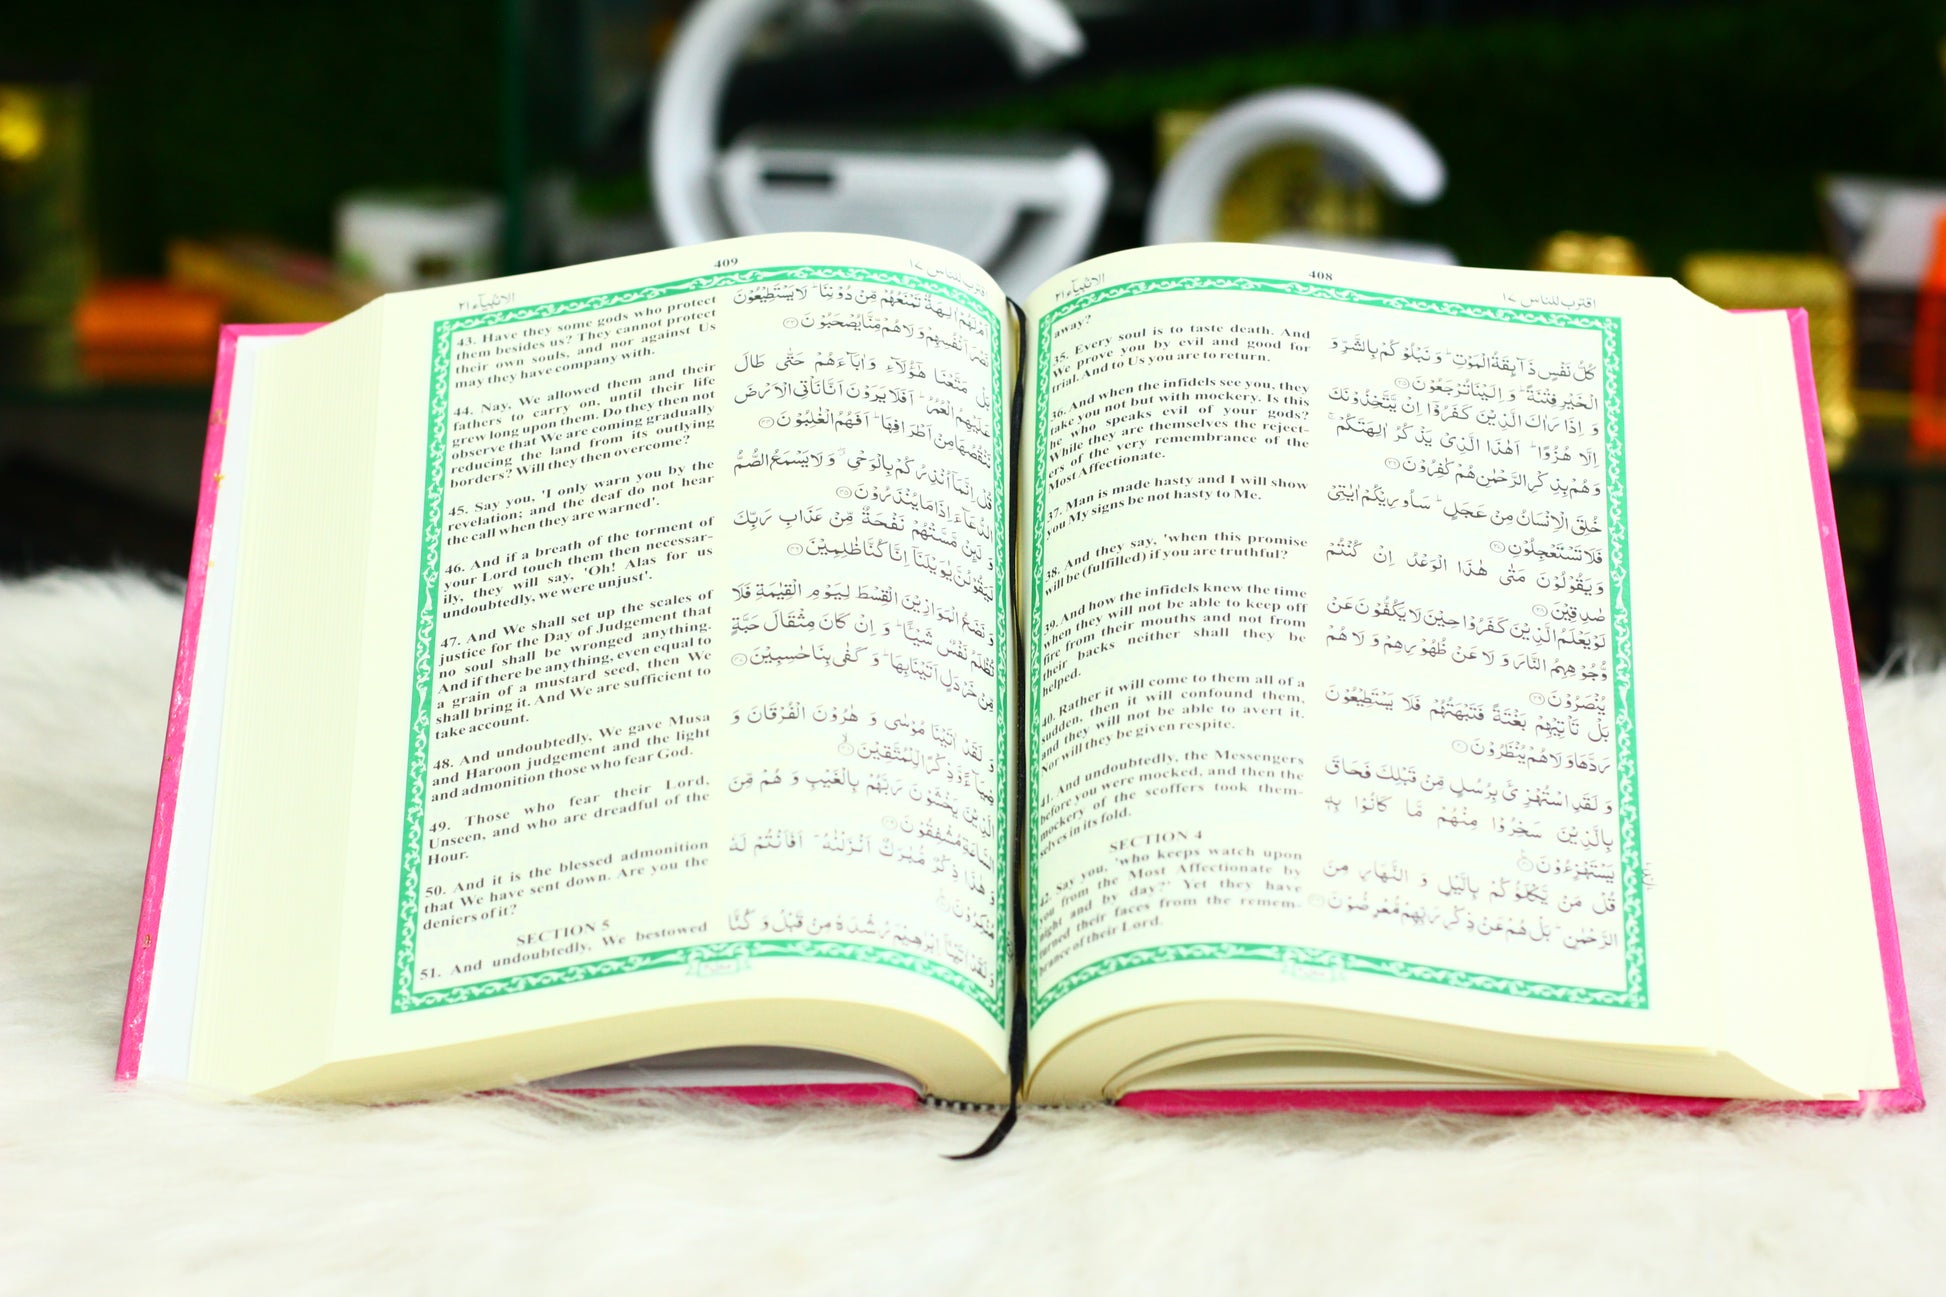 الانبیآء ۲۱
408
اقترب للناس ۱۷
away?
35. Every soul is to taste death. And
We prove you by evil and good for
trial. And to Us you are to return.
36. And when the infidels see you, they
take you not but with mockery. Is this
he who speaks evil of your gods?
While they are themselves the reject-
ers of the very remembrance of the
Most Affectionate.
37. Man is made hasty and I will show
you My signs be not hasty to Me.
38. And they say, 'when this promise
will be (fulfilled) if you are truthful?
39. And how the infidels knew the time
when they will not be able to keep off
fire from their mouths and not from
their backs neither shall they be
helped.
40. Rather it will come to them all of a
sudden, then it will confound them,
and they will not be able to avert it.
Nor will they be given respite.
41. And undoubtedly, the Messengers
before you were mocked, and then the
mockery of the scoffers took them-
selves in its fold.
SECTION 4
42. Say you, 'who keeps watch upon
you from the Most Affectionate by
night and by day?' Yet they have
turned their faces from the remem-
brance of their Lord.
كُلُّ نَفْسٍ ذَآىِٕقَةُ الْمَوْتِ ؕ وَ نَبْلُوْكُمْ بِالشَّرِّ وَ
الْخَيْرِ فِتْنَةً ؕ وَ اِلَيْنَا تُرْجَعُوْنَ ۝۳۵
وَ اِذَا رَاٰكَ الَّذِيْنَ كَفَرُوْٓا اِنْ يَّتَّخِذُوْنَكَ
اِلَّا هُزُوًا ؕ اَهٰذَا الَّذِيْ يَذْكُرُ اٰلِهَتَكُمْ ۚ
وَهُمْ بِذِكْرِ الرَّحْمٰنِ هُمْ كٰفِرُوْنَ ۝۳۶
خُلِقَ الْاِنْسَانُ مِنْ عَجَلٍ ؕ سَاُورِيْكُمْ اٰيٰتِيْ
فَلَا تَسْتَعْجِلُوْنِ ۝۳۷
وَ يَقُوْلُوْنَ مَتٰى هٰذَا الْوَعْدُ اِنْ كُنْتُمْ
صٰدِقِيْنَ ۝۳۸
لَوْ يَعْلَمُ الَّذِيْنَ كَفَرُوْا حِيْنَ لَا يَكُفُّوْنَ عَنْ
وُّجُوْهِهِمُ النَّارَ وَ لَا عَنْ ظُهُوْرِهِمْ وَ لَا هُمْ
يُنْصَرُوْنَ ۝۳۹
بَلْ تَاْتِيْهِمْ بَغْتَةً فَتَبْهَتُهُمْ فَلَا يَسْتَطِيْعُوْنَ
رَدَّهَا وَ لَا هُمْ يُنْظَرُوْنَ ۝۴۰
وَ لَقَدِ اسْتُهْزِئَ بِرُسُلٍ مِّنْ قَبْلِكَ فَحَاقَ
بِالَّذِيْنَ سَخِرُوْا مِنْهُمْ مَّا كَانُوْا بِهٖ
يَسْتَهْزِءُوْنَ ۝۴۱
قُلْ مَنْ يَّكْلَؤُكُمْ بِالَّيْلِ وَ النَّهَارِ مِنَ
الرَّحْمٰنِ ؕ بَلْ هُمْ عَنْ ذِكْرِ رَبِّهِمْ مُّعْرِضُوْنَ ۝۴۲
الانبیآء ۲۱
409
اقترب للناس ۱۷
43. Have they some gods who protect
them besides us? They cannot protect
their own souls, and nor against Us
may they have company with.
44. Nay, We allowed them and their
fathers to carry on, until their life
grew long upon them. Do they then not
observe that We are coming gradually
reducing the land from its outlying
borders? Will they then overcome?
45. Say you, 'I only warn you by the
revelation; and the deaf do not hear
the call when they are warned'.
46. And if a breath of the torment of
your Lord touch them then necessar-
ily, they will say, 'Oh! Alas for us
undoubtedly, we were unjust'.
47. And We shall set up the scales of
justice for the Day of Judgement that
no soul shall be wronged anything.
And if there be anything, even equal to
a grain of a mustard seed, then We
shall bring it. And We are sufficient to
take account.
48. And undoubtedly, We gave Musa
and Haroon judgement and the light
and admonition those who fear God.
49. Those who fear their Lord,
Unseen, and who are dreadful of the
Hour.
50. And it is the blessed admonition
that We have sent down. Are you the
deniers of it?
SECTION 5
51. And undoubtedly, We bestowed
اَمْ لَهُمْ اٰلِهَةٌ تَمْنَعُهُمْ مِّنْ دُوْنِنَا ؕ لَا يَسْتَطِيْعُوْنَ
نَصْرَ اَنْفُسِهِمْ وَ لَا هُمْ مِّنَّا يُصْحَبُوْنَ ۝۴۳
بَلْ مَتَّعْنَا هٰۤؤُلَآءِ وَ اٰبَآءَهُمْ حَتّٰى طَالَ
عَلَيْهِمُ الْعُمُرُ ؕ اَفَلَا يَرَوْنَ اَنَّا نَاْتِي الْاَرْضَ
نَنْقُصُهَا مِنْ اَطْرَافِهَا ؕ اَفَهُمُ الْغٰلِبُوْنَ ۝۴۴
قُلْ اِنَّمَآ اُنْذِرُكُمْ بِالْوَحْيِ ۖ وَ لَا يَسْمَعُ الصُّمُّ
الدُّعَآءَ اِذَا مَا يُنْذَرُوْنَ ۝۴۵
وَ لَىِٕنْ مَّسَّتْهُمْ نَفْحَةٌ مِّنْ عَذَابِ رَبِّكَ
لَيَقُوْلُنَّ يٰوَيْلَنَآ اِنَّا كُنَّا ظٰلِمِيْنَ ۝۴۶
وَ نَضَعُ الْمَوَازِيْنَ الْقِسْطَ لِيَوْمِ الْقِيٰمَةِ فَلَا
تُظْلَمُ نَفْسٌ شَيْـًٔا ؕ وَ اِنْ كَانَ مِثْقَالَ حَبَّةٍ
مِّنْ خَرْدَلٍ اَتَيْنَا بِهَا ؕ وَ كَفٰى بِنَا حٰسِبِيْنَ ۝۴۷
وَ لَقَدْ اٰتَيْنَا مُوْسٰى وَ هٰرُوْنَ الْفُرْقَانَ وَ
ضِيَآءً وَّ ذِكْرًا لِّلْمُتَّقِيْنَ ۝۴۸
الَّذِيْنَ يَخْشَوْنَ رَبَّهُمْ بِالْغَيْبِ وَ هُمْ مِّنَ
السَّاعَةِ مُشْفِقُوْنَ ۝۴۹
وَ هٰذَا ذِكْرٌ مُّبٰرَكٌ اَنْزَلْنٰهُ ؕ اَفَاَنْتُمْ لَهٗ
مُنْكِرُوْنَ ۝۵۰
وَ لَقَدْ اٰتَيْنَآ اِبْرٰهِيْمَ رُشْدَهٗ مِنْ قَبْلُ وَ كُنَّا